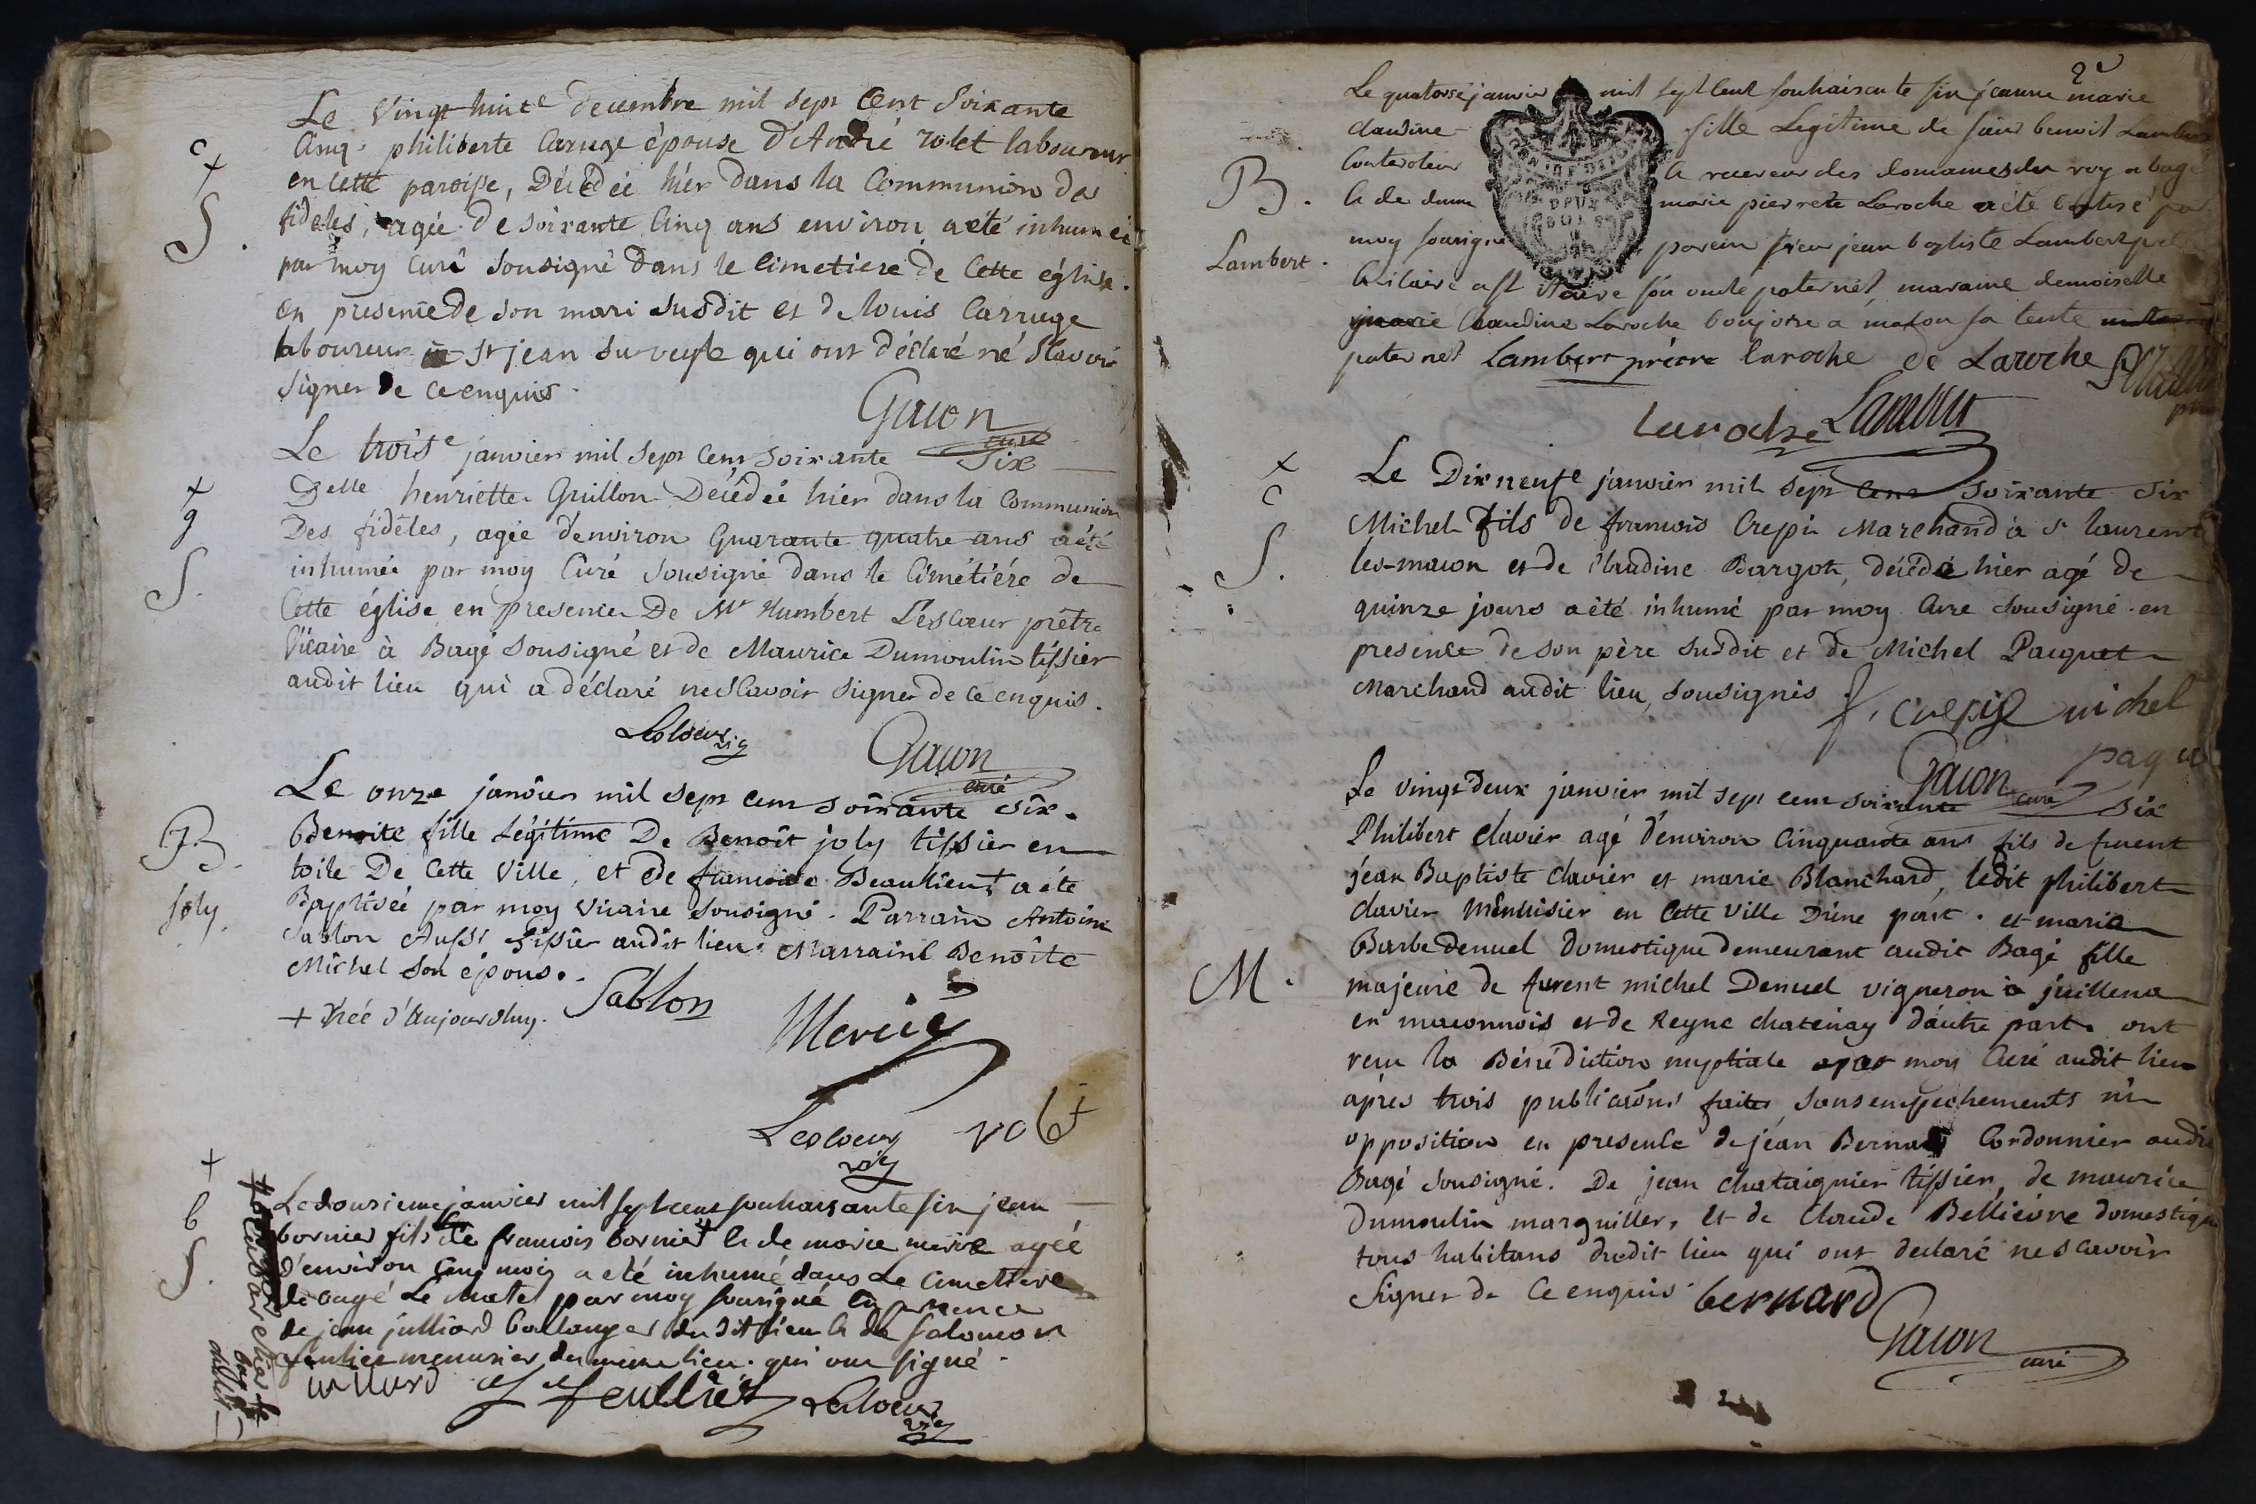 Le Vingt huit e decembre mil sept Cent Soixante
Cinq. philiberte Caruge épouse d'André rolet laboureur
en cette paroisse, Décédée hier dans la Communion des
fideles, agée de soixante Cinq ans environ a été inhumée
par moy Curé Sousigné dans le Cimetiere de Cette église.
en presence de son mari Susdit et de louis Carruge
laboureur a St jean Surveyle qui ont déclaré né Sçavoir
Signer de ce enquis.
Gacon
curé
c
+
S.
Le trois e janvier mil Sept Cent Soixante Six
Delle henriette Guillon Décédée hier dans la Communion
Des fidèles, agée d'environ Quarante quatre ans a été
inhumée par moy Curé Sousigné dans le Cimétiére de
Cette église en presence De Mr Humbert Lescœur prétre
Vicaire à Bagé Sousigné et de Maurice Dumoulin tissier
audit lieu qui a déclaré ne Sçavoir Signer de Ce enquis.
+
g
S.
Lescoeur vic
Gacon
curé
Le onze janvier mil Sept cent Soixante Six.
Benoite fille Légitime De Benoît joly tissier en
toile De Cette Ville, et de francoise Beaulieu + a été
Baptisée par moy Vicaire Sousigné. Parrain Antoine
Sablon Aussi Tissier audit lieu. Marraine Benoîte
Michel Son épouse.
+ Née d'Aujourdhuy.
B.
joly.
Sablon
Lescoeur
vic
+
b
S.
Le dousieme janvier mil sept cens souhaisante six jean
bornier fils de francois bornier + & de marie agée
d'environ cinq mois a été inhumé dans Le Cimettiere
de bagé Le Chatel par moy sousigné En presence
de jean julliard boullanger du dit lieu & de salomon
feullier menusier du même lieu. qui ont signé.
julliard
S feulliét
Lescoeur
vic
2
Le quatorse janvier mil sept cent souhaisante six jeanne marie
claudine fille Legitime de sieur benoit Lambert
Conteroleur & receveur des domaines du roy a bagé
& de dame marie pierrete Laroche a été batisé par
moy sousigné parein sieur jean baptiste Lambert
son oncle paternel, maraine demoiselle
Claudine Laroche a macon sa tente
paternel Lambert prêtre laroche de Laroche
laroche Lambert
B.
Lambert.
Le Dix neuf e janvier mil Sept Cent Soixante Six
Michel fils de francois Crepin Marchand à St laurent
les-macon et de Claudine Bargot, décédé hier agé de
quinze jours a été inhumé par moy Curé Sousigné. en
presence de son père Susdit et de Michel Pacquet
Marchand audit lieu Sousignés
+
c
S.
f. crepin michel
paque
Gacon
curé
Le Vingt Deux janvier mil Sept cent Soixante Six
Philibert Clavier agé d'environ Cinquante ans fils de fuent
jéan Baptiste Clavier et marie Blanchard, ledit philibert
Clavier Menuisier en Cette Ville D'une part. et maria
Barbe Denuel Domestique demeurant audit Bagé fille
majeure de fuent michel Denuel vigneron à juillena
en maconnois et de Reyne chatenay d'autre part. ont
recu la Bénédiction nuptiale par moy Curé audit lieu
après trois publications faites sans empechements ni
opposition en presence de jéan Bernard Cordonnier audit
Bagé Sousigné. De jean chataignier tissier, de maurice
Dumoulin marguiller, et de Claude Bellievre domestique
tous habitans dudit lieu qui ont declaré ne scavoir
Signer de Ce enquis.
M.
bernard
Gacon
curé